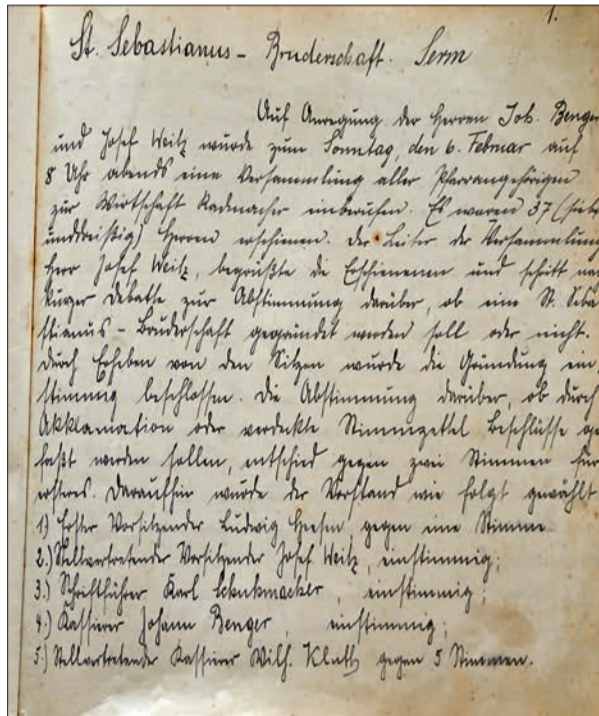 1.
St. Sebastianus - Bruderschaft. Serm
Auf Anregung der Herren Joh. Benger
und Josef Weitz wurde zum Sonntag, den 6. Februar auf
8 Uhr abends eine Versammlung aller Pfarrangehörigen
zur Wirtschaft Radmacher einberufen. Es waren 37 (sieben
unddreißig) Herren erschienen. Der Leiter der Versammlung
Herr Josef Weitz, begrüßte die Erschienenen und schritt nach
kurzer Debatte zur Abstimmung darüber, ob eine St. Seba
stianus - Bruderschaft gegründet werden soll oder nicht.
Durch Erheben von den Sitzen wurde die Gründung ein,
stimmig beschlossen. Die Abstimmung darüber, ob durch
Akklamation oder verdeckte Stimmzettel Beschlüsse ge
faßt werden sollen, entschied gegen zwei Stimmen für
ersteres. Daraufhin wurde der Vorstand wie folgt gewählt
1) Erster Vorsitzender Ludwig Heesen gegen eine Stimme
2.) Stellvertretender Vorsitzender Josef Weitz, einstimmig;
3.) Schriftführer Karl Schuhmacher, einstimmig;
4.) Kassierer Johann Benger, einstimmig;
5.) Stellvertretender Kassierer Wilh. gegen 5 Stimmen.